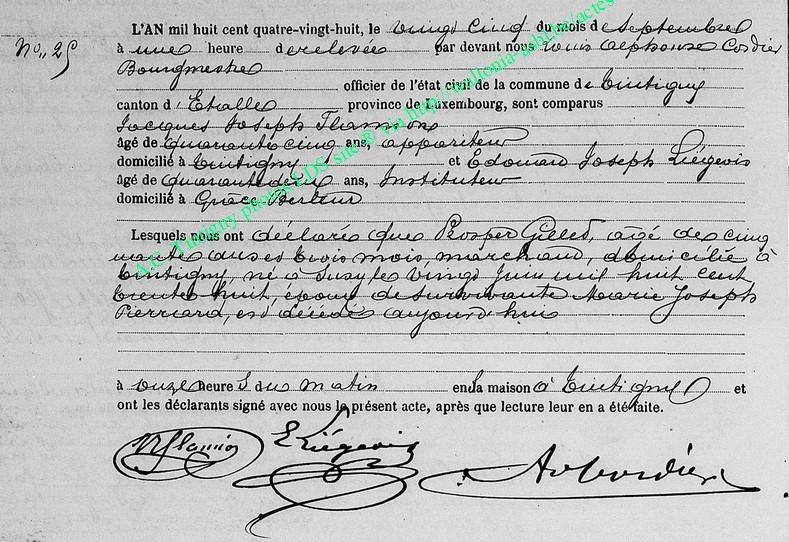 No. 25
L'AN mil huit cent quatre-vingt-huit, le vingt cinq du mois de Septembre
à une heure de relevée par devant nous Louis Alphonse Cordier
Bourgmestre
officier de l'état civil de la commune de Tintigny
canton d'Etalle province de Luxembourg, sont comparus
Jacques Joseph
âgé de quarante cinq ans, appariteur
domicilié à Tintigny et Edouard Joseph Liégeois
âgé de quarante deux ans, Instituteur
domicilié à Grâce Berleur
Lesquels nous ont déclaré que Prosper Gilles, agé de cinq
uante ans et trois mois, marchand, domicilié à
Tintigny, né à Suxy le vingt Juin mil huit cent
trente huit, époux de survivante Marie Joseph
Pierrard, est décédé aujourd'hui
à onze heures du matin en la maison à Tintigny et
ont les déclarants signé avec nous le présent acte, après que lecture leur en a été faite.
E Liégeois
A Cordier
A.C. Tintigny photos LDS site ® via http://wallonia-asbl.be/actes